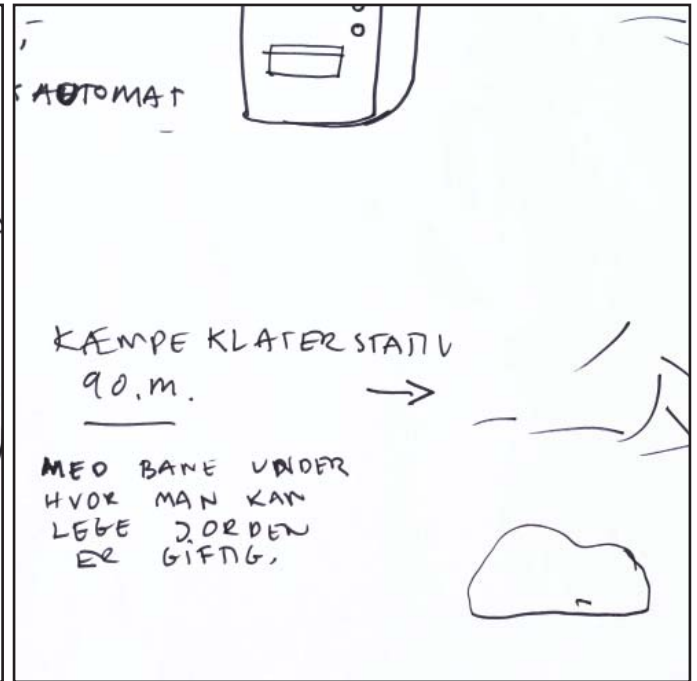 AUTOMAT
KÆMPE KLATERSTATIV
90.m.
MED BANE UNDER
HVOR MAN KAN
LEGE JORDEN
ER GIFTIG.